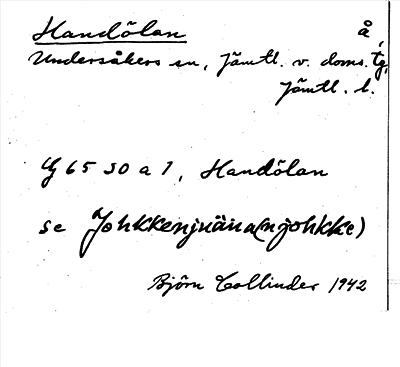 Handölan å,
Undersåkers sn, Jämtl. v. doms. tg,
Jämtl. l.
Y 65 30 a 1, Handölan
se Johkkenjuäna(njohkke)
Björn Collinder 1942